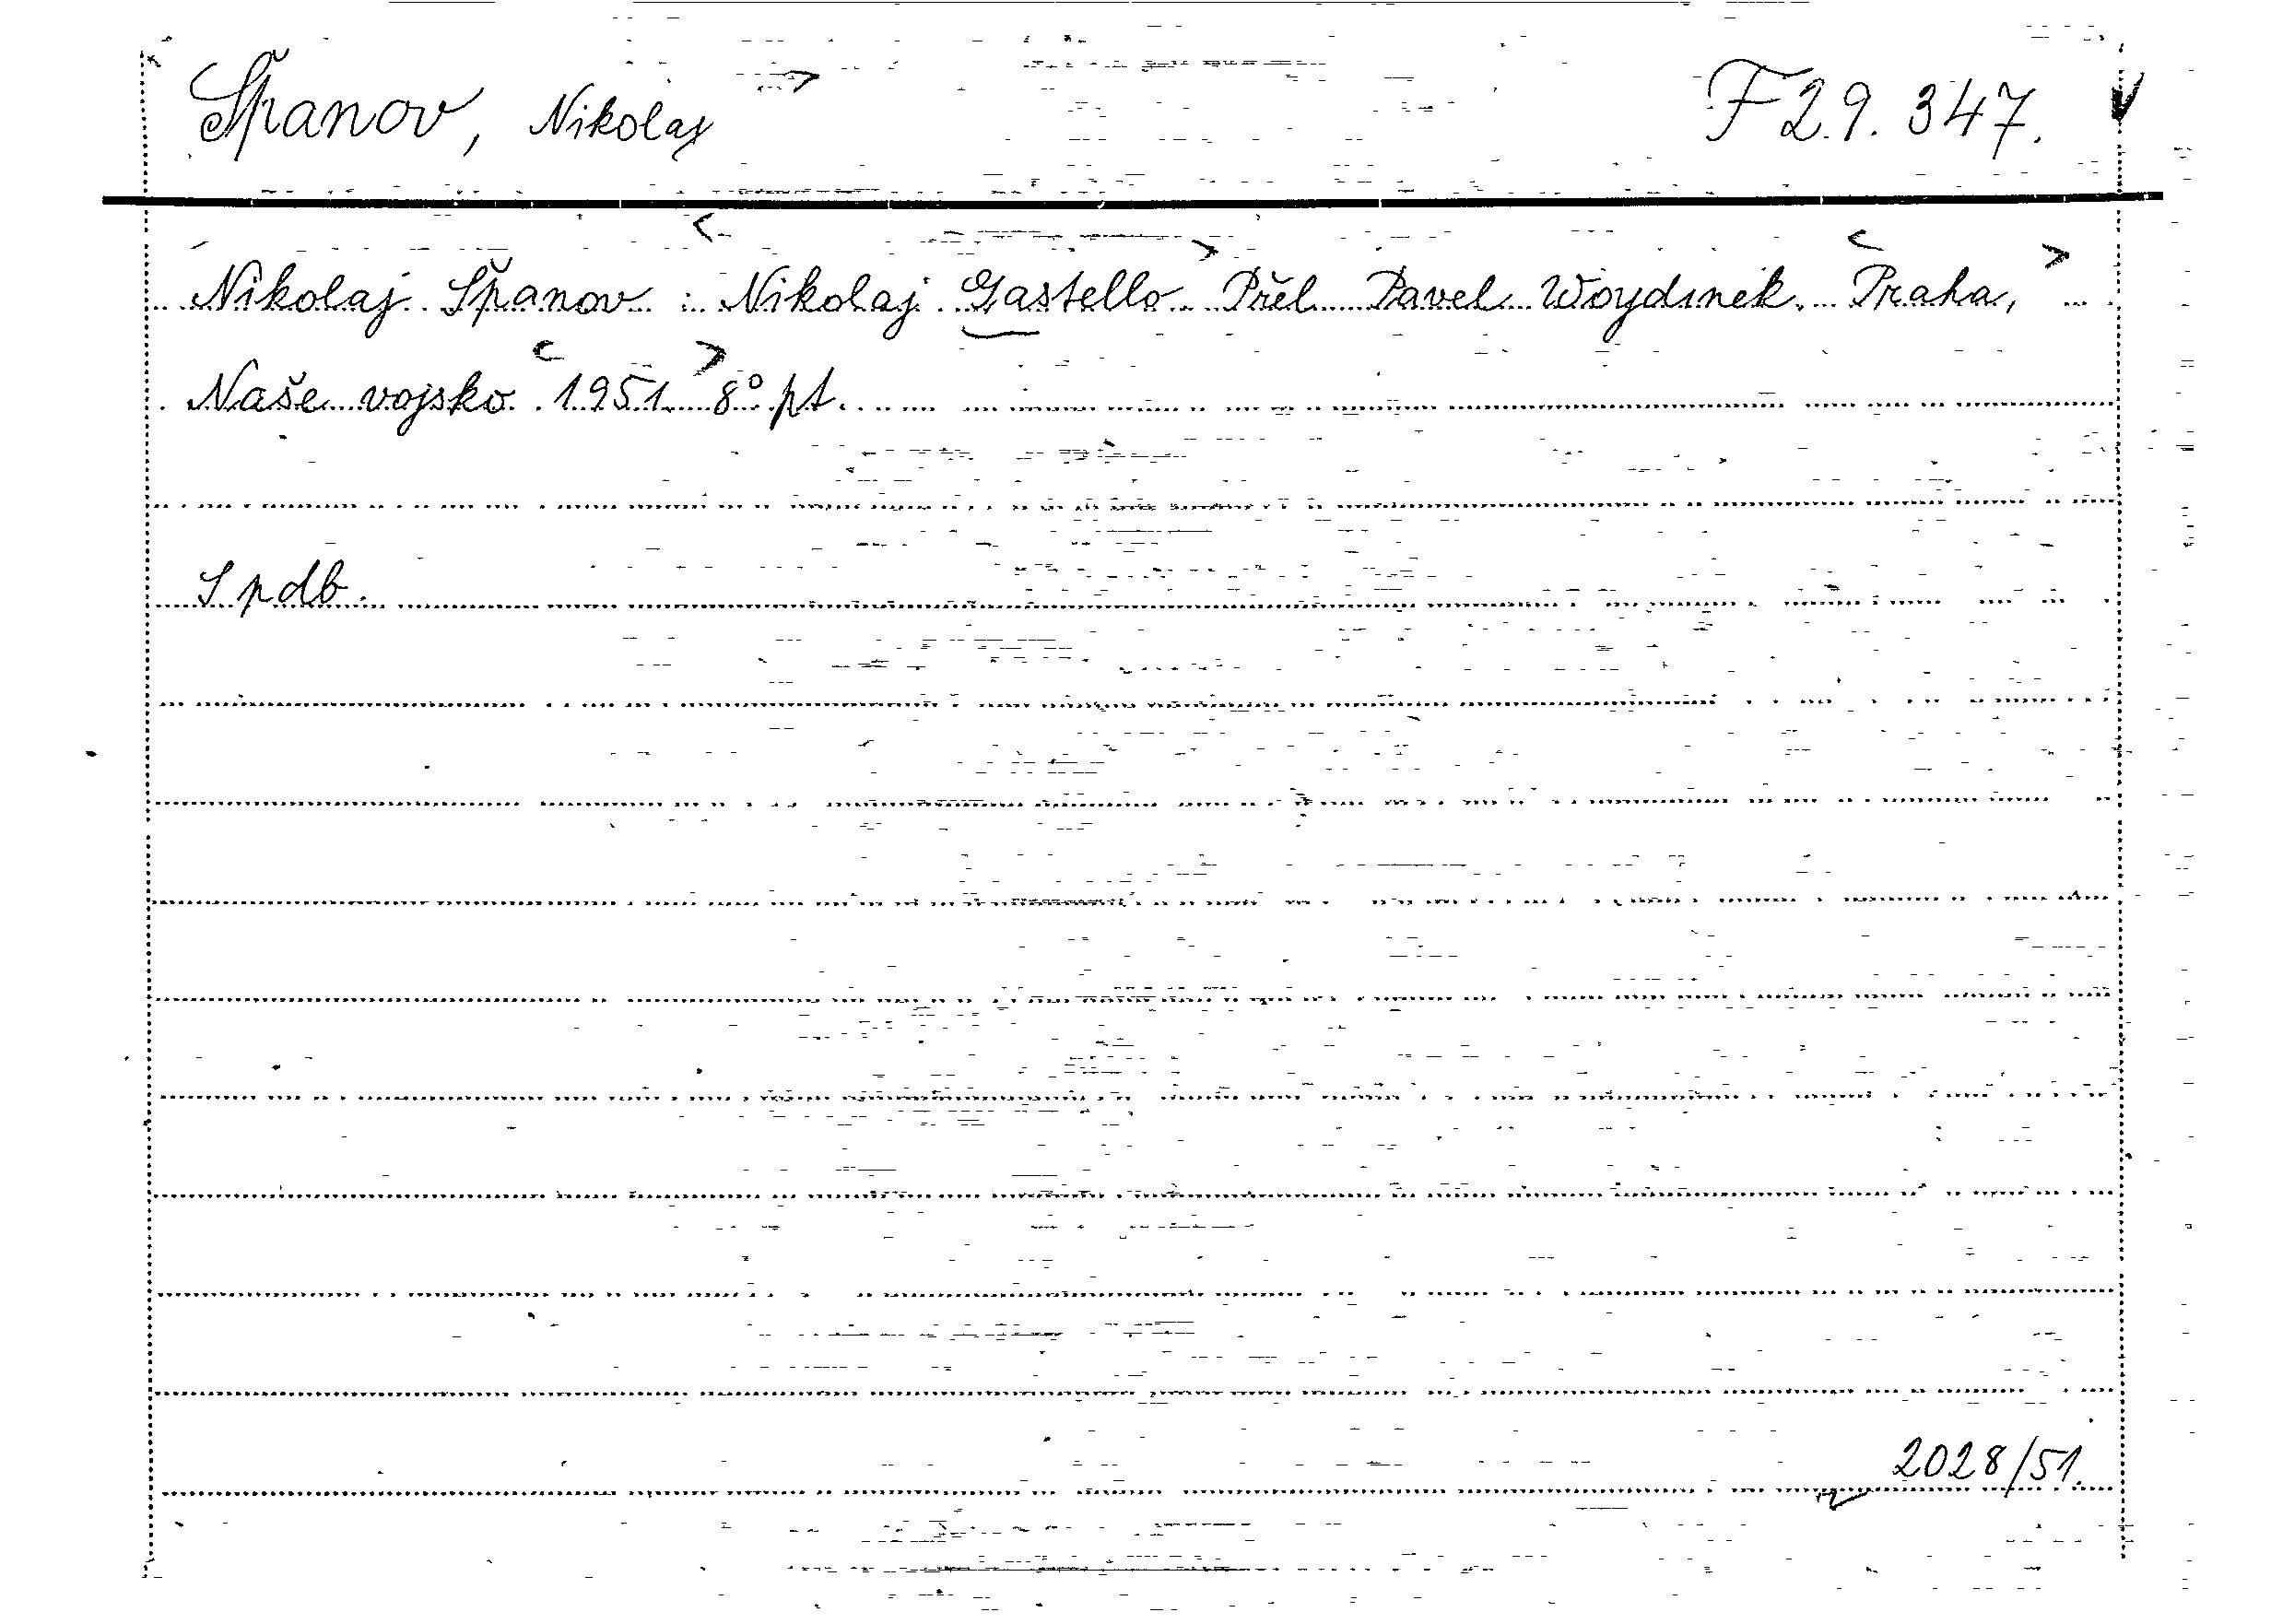 Španov, Nikolaj F 29.347.
Nikolaj Španov : Nikolaj Gastello. Přel. Pavel Woydinek. Praha,
Naše vojsko 1951 8° pt.
S pdb.
2028/51.